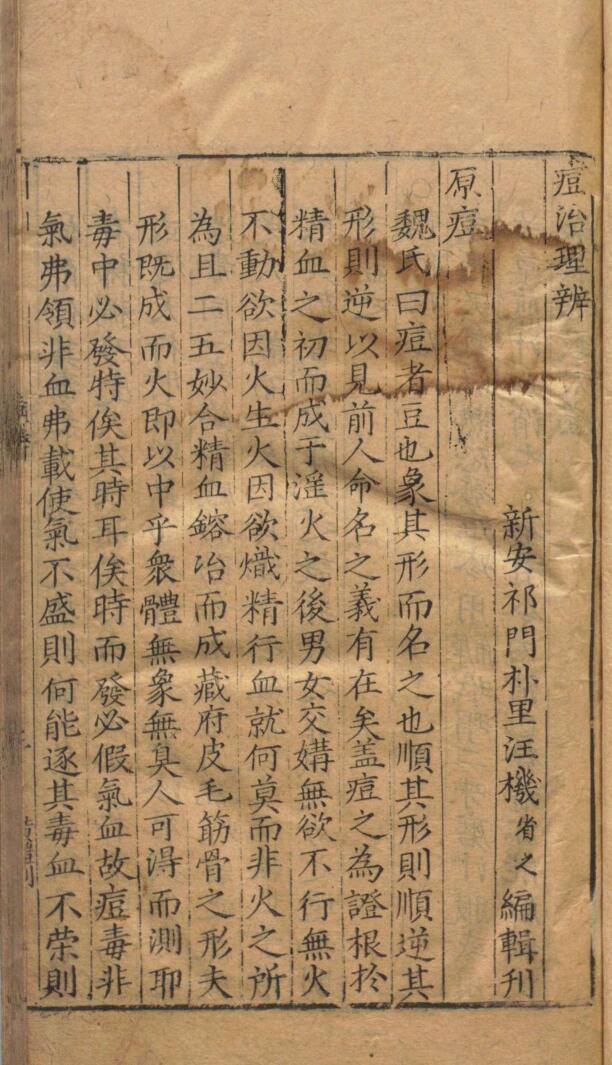 痘治理辨
新安祁門朴里汪機省之編輯刊
原痘
魏氏曰痘者豆也象其形而名之也順其形則順逆其
形則逆以見前人命名之義有在矣盖痘之為證根於
精血之初而成于滛火之後男女交媾無欲不行無火
不動欲因火生火因欲熾精行血就何莫而非火之所
為且二五妙合精血鎔冶而成藏府皮毛筋骨之形夫
形既成而火即以中乎衆體無象無臭人可淂而測耶
毒中必發特俟其時耳俟時而發必假氣血故痘毒非
氣弗領非血弗載使氣不盛則何能逐其毒血不荣則